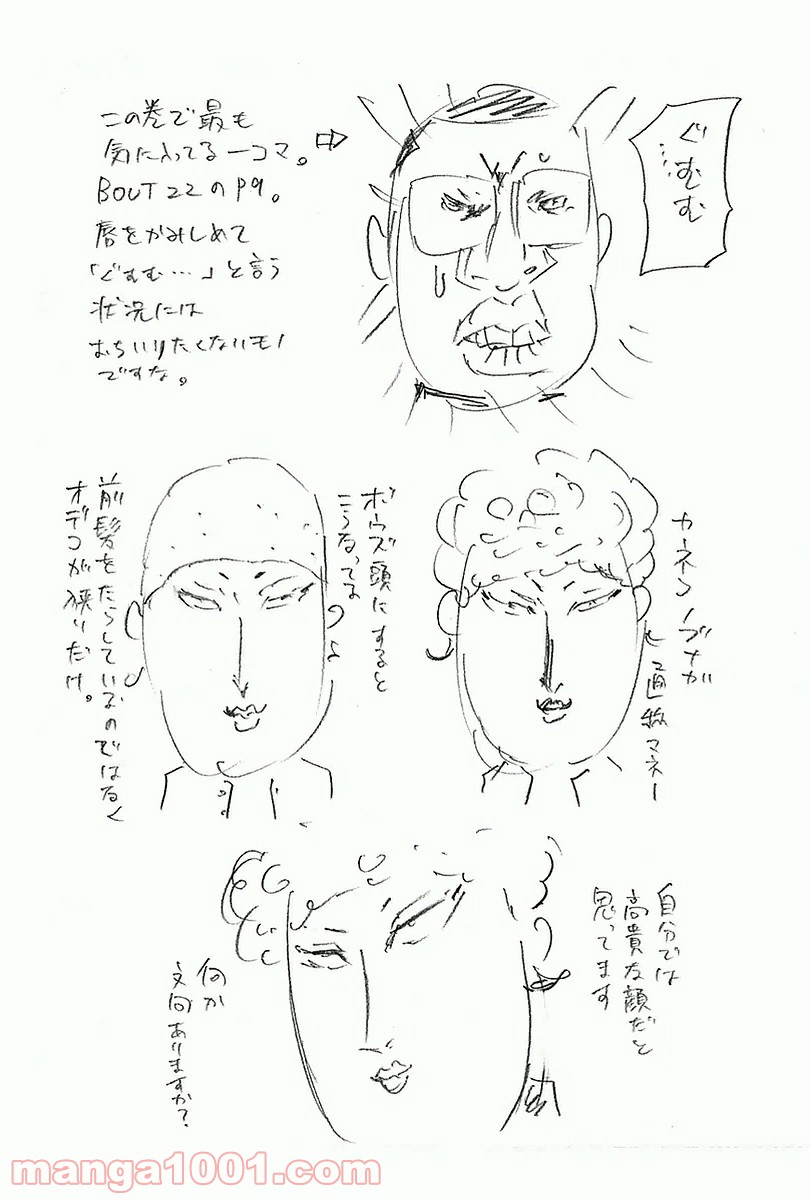 この巻で最も
気に入ってる一コマ。⇨
BOUT 22のP9。
唇をかみしめて
「ぐむむ…」と言う
状況には
おちいりたくないモノ
ですな。
ぐむむ…
カネコノブナガ
通称マネー
ボウズ頭にすると
こうなってる
前髪をたらしているのではなく
オデコが狭いだけ。
自分では
高貴な顔だと
思ってます
何か
文句ありますか?
manga1001.com